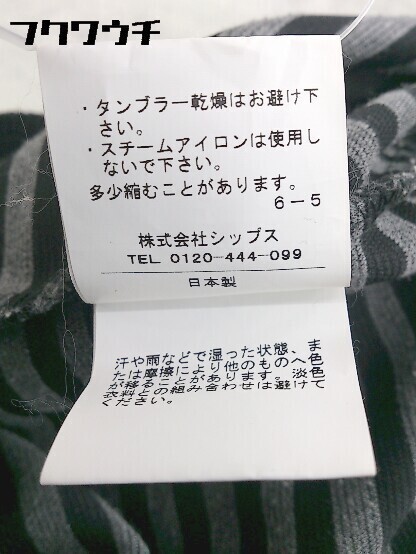 フクワウチ
・タンブラー乾燥はお避け下
さい。
・スチームアイロンは使用し
ないで下さい。
多少縮むことがあります。
6－5
株式会社シップス
TEL 0120-444-099
日本製
汗や雨などで湿った状態、ま
たは摩擦により他のものへ色
が移ることがあります。淡色
衣料との組み合わせは避けて
ください。